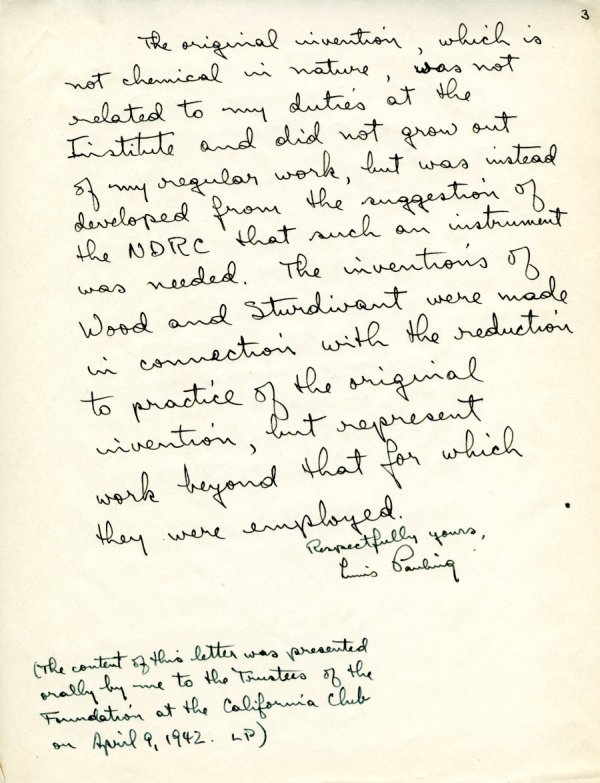 3
The original invention, which is
not chemical in nature, was not
related to my duties at the
Institute and did not grow out
of my regular work, but was instead
developed from the suggestion of
the NDRC that such an instrument
was needed. The inventions of
Wood and Sturdivant were made
in connection with the reduction
to practice of the original
invention, but represent
work beyond that for which
they were employed.
Respectfully yours,
Linus Pauling
(The content of this letter was presented
orally by me to the Trustees of the
Foundation at the California Club
on April 9, 1942. LP)